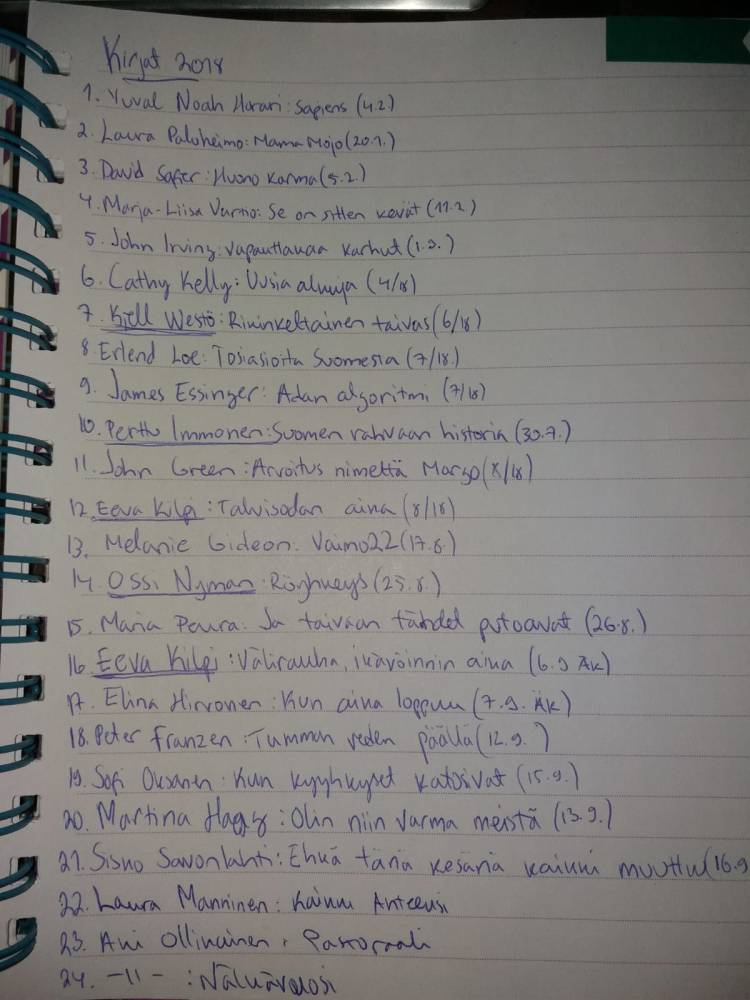 Kirjat 2018
1. Yuval Noah Harari: Sapiens (4.2)
2. Laura Paloheimo: Mama Mojo (20.1.)
3. David Safier: Huono karma (5.2.)
4. Marja-Liisa Vartio: Se on sitten kevät (11.2)
5. John Irving: Vapauttakaa karhut (1.3.)
6. Cathy Kelly: Uusia alkuja (4/18)
7. Kjell Westö: Rikinkeltainen taivas (6/18)
8. Erlend Loe: Tosiasioita Suomesta (7/18.)
9. James Essinger: Adan algoritmi (7/18)
10. Perttu Immonen: Suomen rahvaan historia (30.7.)
11. John Green: Arvoitus nimeltä Margo (8/18)
12. Eeva Kilpi: Talvisodan aika (8/18)
13. Melanie Gideon: Vaimo22 (17.8.)
14. Ossi Nyman: Röyhkeys (25.8.)
15. Maria Peura: Ja taivaan tähdet putoavat (26.8.)
16. Eeva Kilpi: Välirauha, ikävöinnin aika (6.9 ÄK)
17. Elina Hirvonen: Kun aika loppuu (7.9. ÄK)
18. Peter Franzen: Tumman veden päällä (12.9. )
19. Sofi Oksanen: Kun kyyhkyset katosivat (15.9.)
20. Martina Haag: Olin niin varma meistä (13.9.)
21. Sisko Savonlahti: Ehkä tänä kesänä kaikki muuttuu (16.9
22. Laura Manninen: Kaikki Anteeksi
23. Aki Ollikainen: Pastoraali
24. -11- : Nälkävuosi